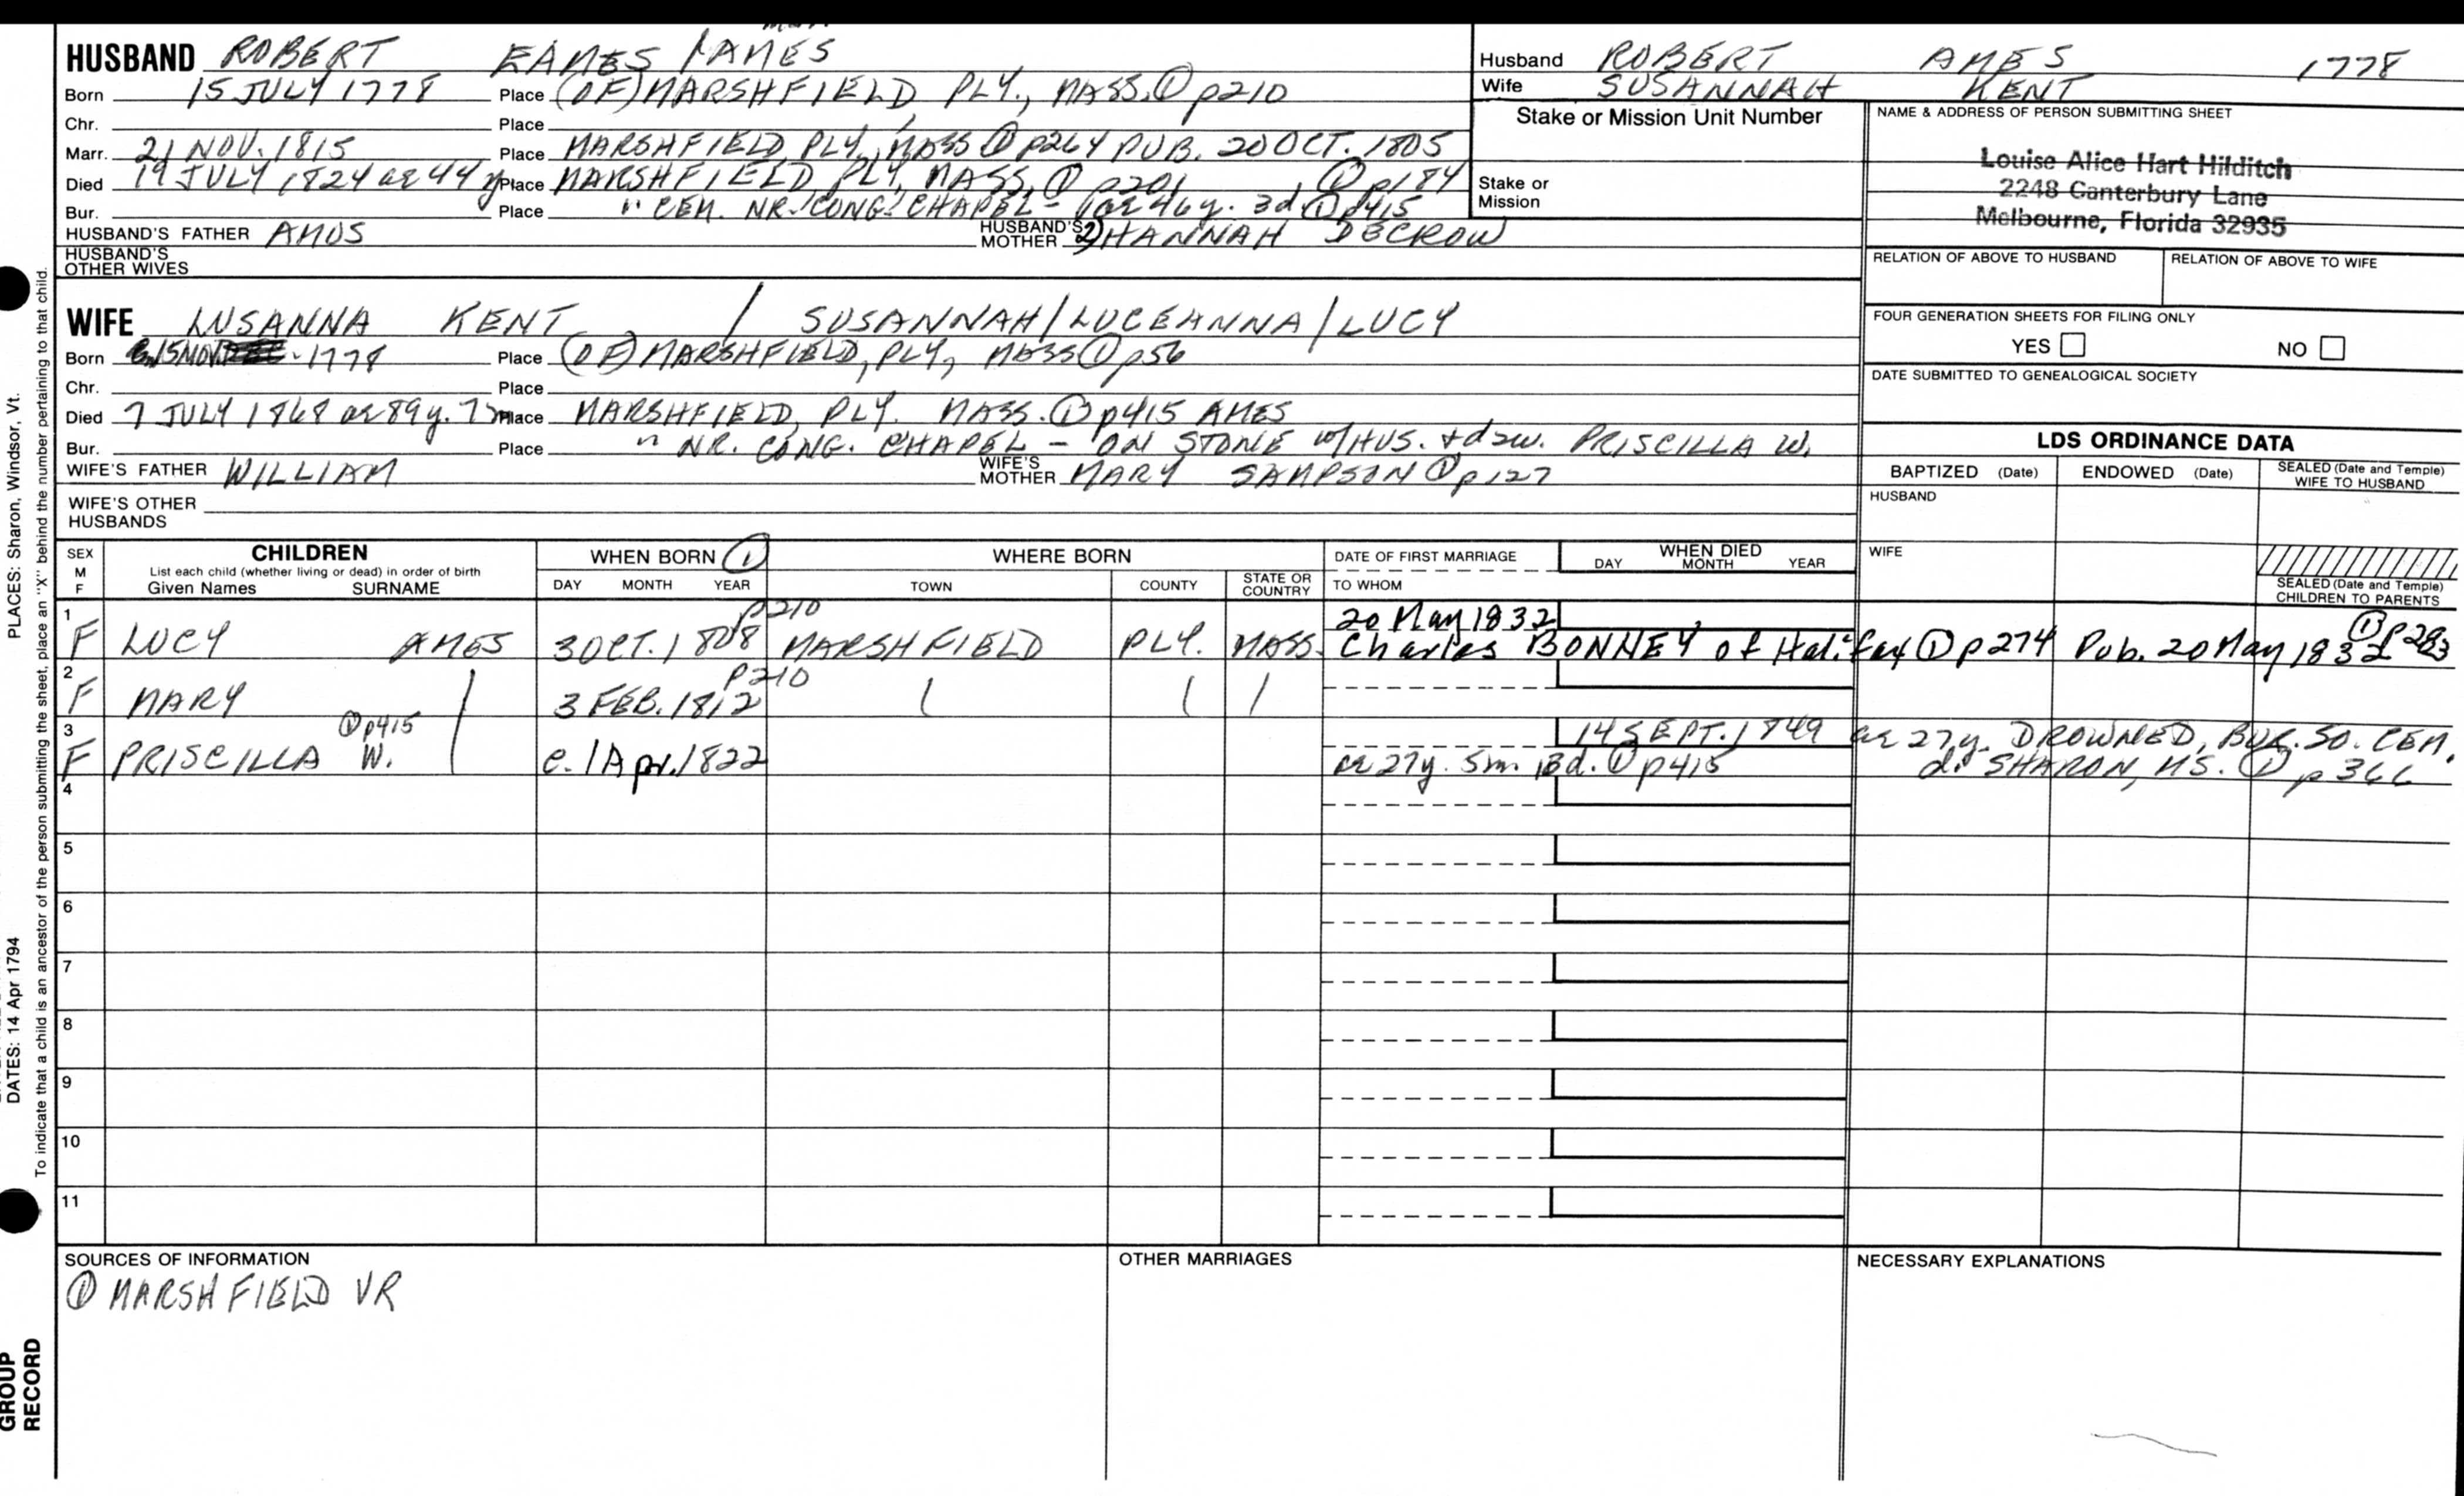 HUSBAND ROBERT EAMES / AMES
Born 15 JULY 1778 Place (OF) MARSHFIELD, PLY., MASS. ① p210
Chr. Place
Marr. 21 NOV. 1815 Place MARSHFIELD PLY., MASS ① p264 PUB. 20 OCT. 1805
Died 19 JULY 1824 ae 44 y Place MARSHFIELD, PLY, MASS. ① p201, ① p184
Bur. Place " CEM. NR. CONG. CHAPEL - (ae 46 y. 3d. ① p415
HUSBAND'S FATHER AMOS HUSBAND'S MOTHER 2) HANNAH DECROW
HUSBAND'S OTHER WIVES
Husband ROBERT AMES 1778
Wife SUSANNAH KENT
Stake or Mission Unit Number
Stake or Mission
NAME & ADDRESS OF PERSON SUBMITTING SHEET
Louise Alice Hart Hilditch
2248 Canterbury Lane
Melbourne, Florida 32935
RELATION OF ABOVE TO HUSBAND RELATION OF ABOVE TO WIFE
FOUR GENERATION SHEETS FOR FILING ONLY
YES NO
DATE SUBMITTED TO GENEALOGICAL SOCIETY
WIFE LUSANNA KENT / SUSANNAH/LUCEANNA/LUCY
Born 15 NOV. 1778 Place (OF) MARSHFIELD, PLY, MASS ① p56
Chr. Place
Died 7 JULY 1868 ae 89 y. 7 m Place MARSHFIELD, PLY. MASS. ① p415 AMES
Bur. Place " NR. CONG. CHAPEL - ON STONE W/HUS. + daw. PRISCILLA W.
WIFE'S FATHER WILLIAM WIFE'S MOTHER MARY SAMPSON ① p127
WIFE'S OTHER HUSBANDS
LDS ORDINANCE DATA
BAPTIZED (Date) ENDOWED (Date) SEALED (Date and Temple) WIFE TO HUSBAND
HUSBAND
WIFE
SEALED (Date and Temple) CHILDREN TO PARENTS
SEX M F CHILDREN List each child (whether living or dead) in order of birth Given Names SURNAME
WHEN BORN ① DAY MONTH YEAR
WHERE BORN TOWN COUNTY STATE OR COUNTRY
DATE OF FIRST MARRIAGE TO WHOM
WHEN DIED DAY MONTH YEAR
p210 20 May 1832 ① p283
1 F LUCY AMES 3 OCT. 1808 MARSHFIELD PLY. MASS. Charles BONNEY of Halifax ① p274 Pub. 20 May 1832
p210
2 F MARY 3 FEB. 1812
① p415 14 SEPT. 1849 ae 27 y. DROWNED, BUR. SO. CEM.
3 F PRISCILLA W. c. 1 Apr. 1822 ae 27y. 5m. 13d. ① p415 d. SHARON, MS. ① p366
4
5
6
7
8
9
10
11
SOURCES OF INFORMATION
① MARSHFIELD VR
OTHER MARRIAGES
NECESSARY EXPLANATIONS
PLACES: Sharon, Windsor, Vt.
DATES: 14 Apr 1794
To indicate that a child is an ancestor of the person submitting the sheet, place an "X" behind the number pertaining to that child.
GROUP
RECORD